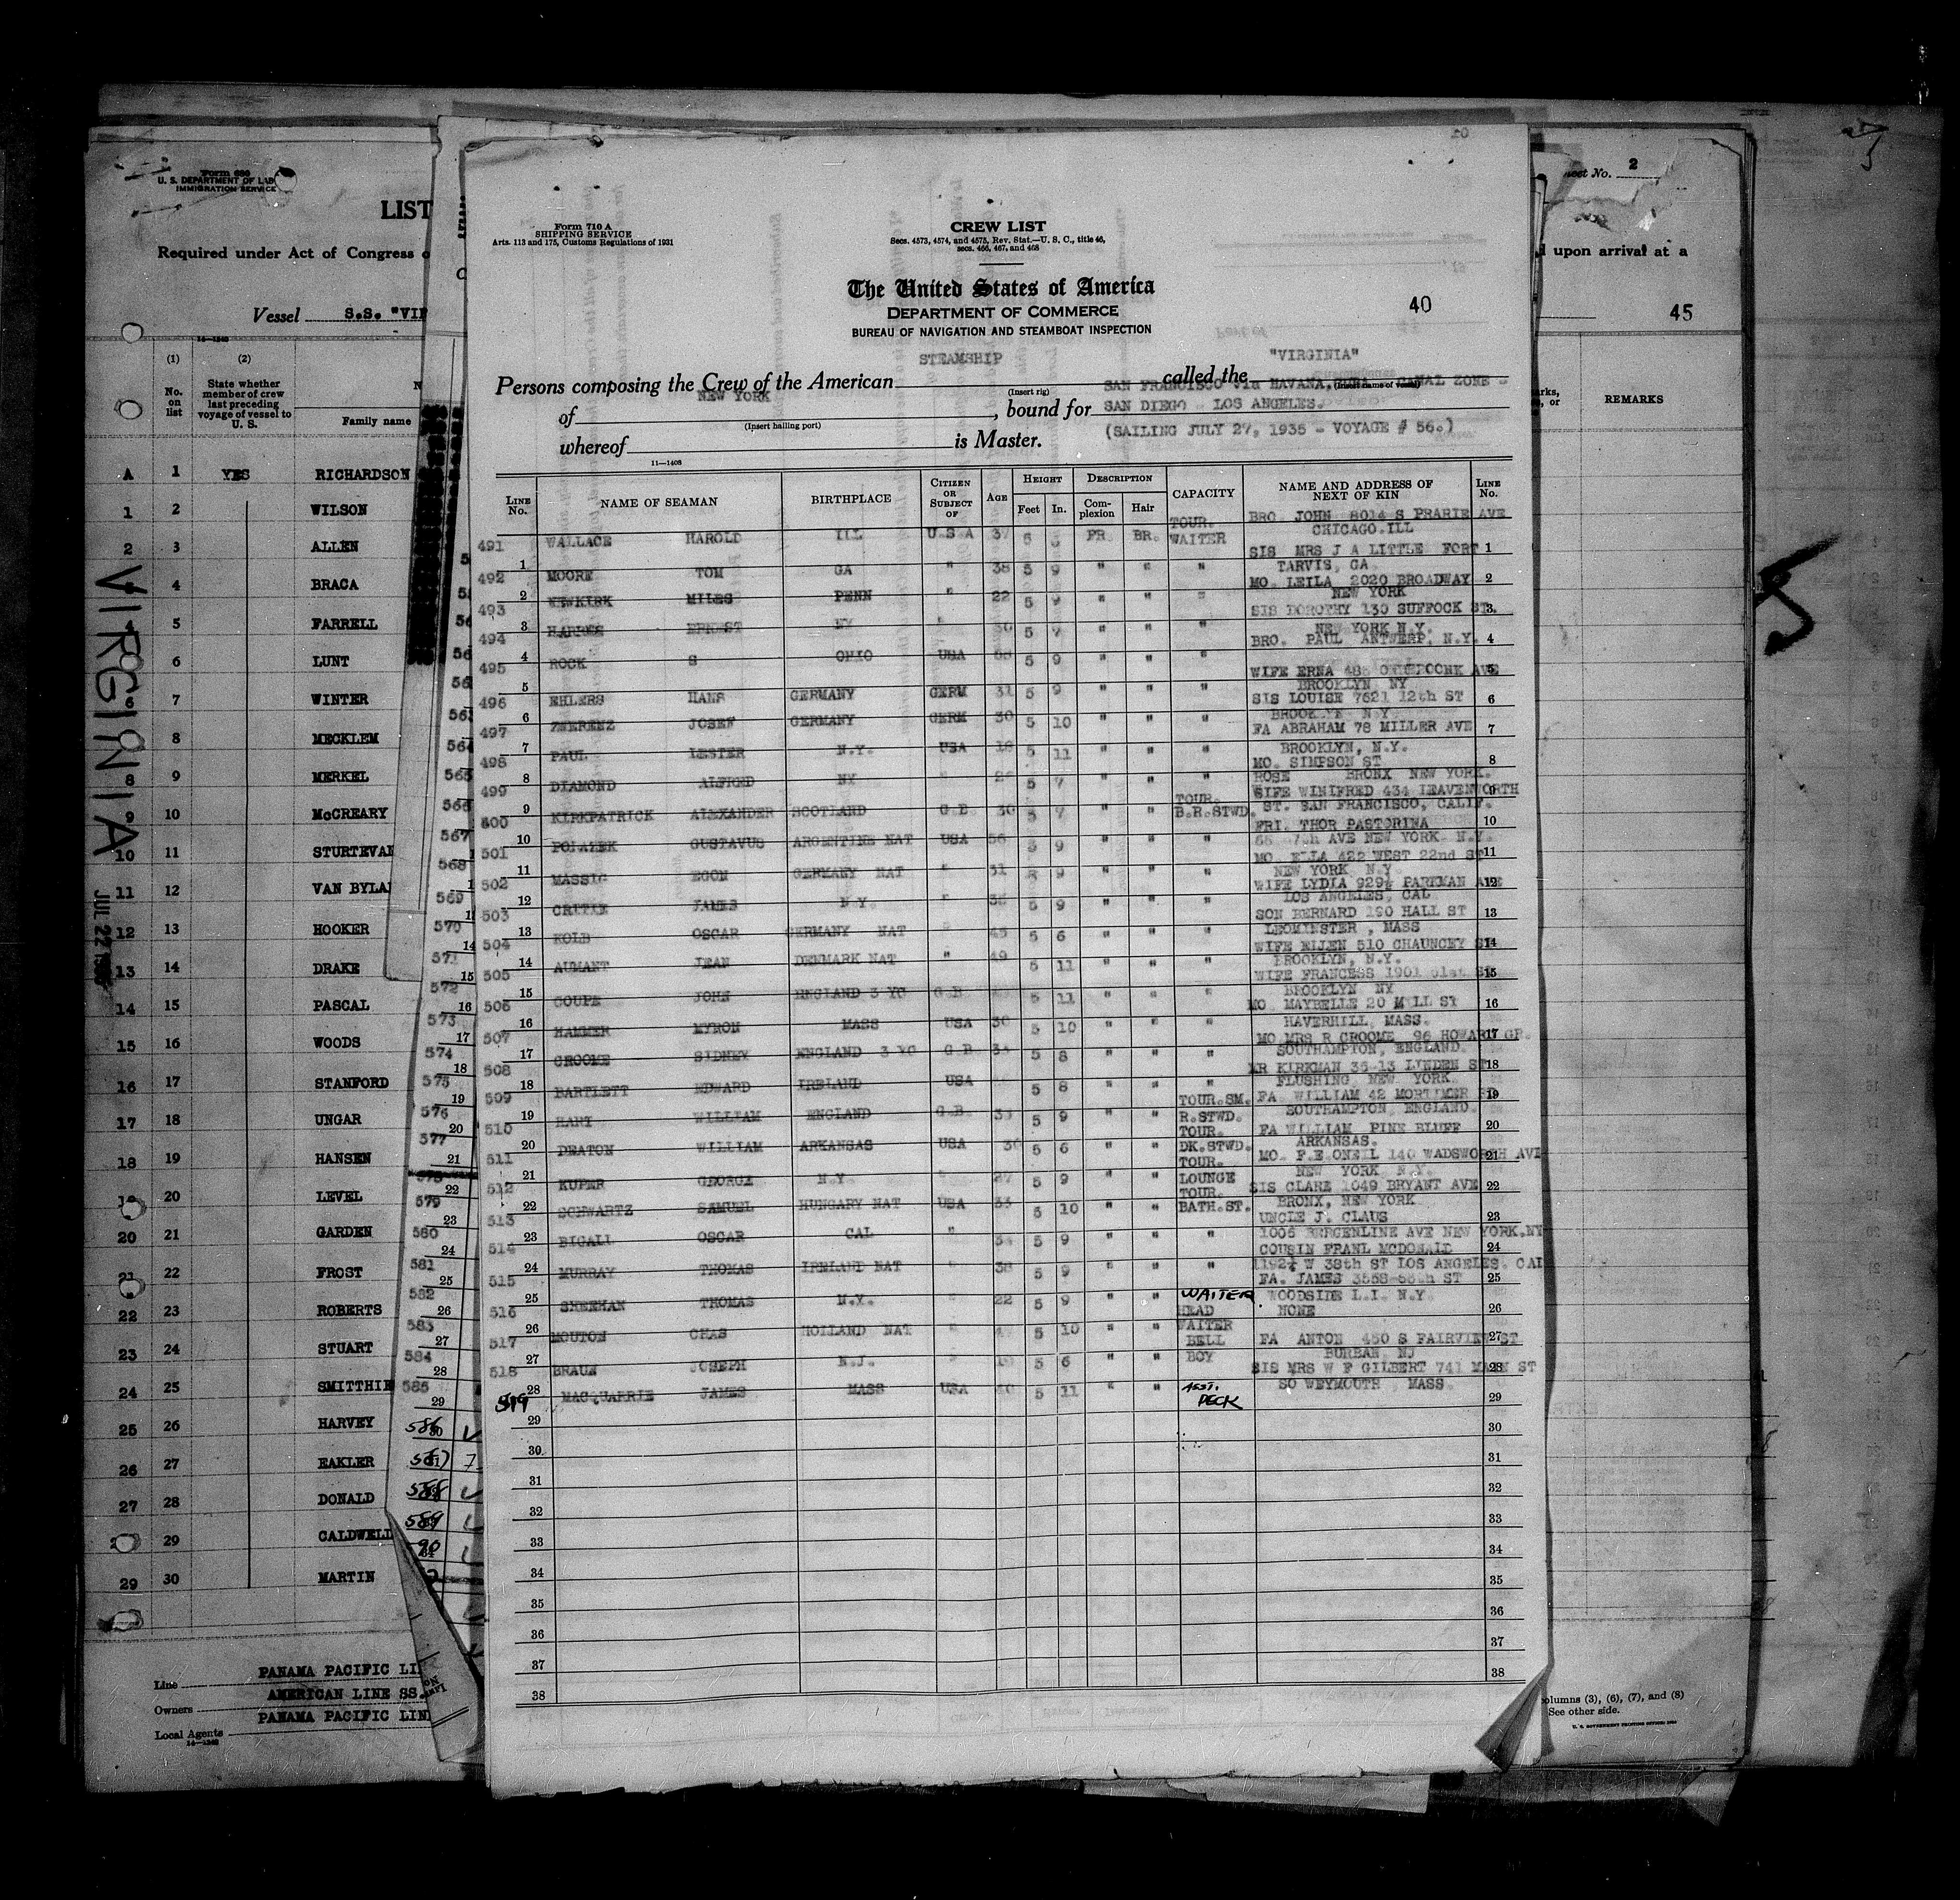 Form 680
U. S. DEPARTMENT OF LAB
IMMIGRATION SERVICE
LIST
Required under Act of Congress o
Vessel S.S. "VI
(1) (2)
No. on list
State whether member of crew last preceding voyage of vessel to U. S.
Family name
A 1 YES RICHARDSON
1 2 WILSON
2 3 ALLEN
4 BRACA
5 FARRELL
6 LUNT
6 7 WINTER
8 MECKLEM
8 9 MERKEL
9 10 McCREARY
10 11 STURTEVAN
11 12 VAN BYLA
12 13 HOOKER
13 14 DRAKE
14 15 PASCAL
15 16 WOODS
16 17 STANFORD
17 18 UNGAR
18 19 HANSEN
19 20 LEVEL
20 21 GARDEN
21 22 FROST
22 23 ROBERTS
23 24 STUART
24 25 SMITTHIE
25 26 HARVEY
26 27 EAKLER
27 28 DONALD
29 CALDWELL
29 30 MARTIN
VIRGINIA
Line PANAMA PACIFIC LI
Owners AMERICAN LINE SS.
Local Agents PANAMA PACIFIC LIN
14-1240
Form 710 A
SHIPPING SERVICE
Arts. 113 and 175, Customs Regulations of 1931
CREW LIST
Secs. 4573, 4574, and 4575, Rev. Stat.—U. S. C., title 46,
secs. 466, 467, and 468
The United States of America
DEPARTMENT OF COMMERCE
BUREAU OF NAVIGATION AND STEAMBOAT INSPECTION
40
STEAMSHIP "VIRGINIA"
Persons composing the Crew of the American called the
(Insert rig) (Insert name of vessel)
SAN FRANCISCO via HAVANA, CUBA - CANAL ZONE -
of NEW YORK, bound for SAN DIEGO LOS ANGELES.
(Insert hailing port)
whereof is Master. (SAILING JULY 27, 1935 - VOYAGE # 56.)
11-1408
LINE No. NAME OF SEAMAN BIRTHPLACE CITIZEN OR SUBJECT OF AGE HEIGHT Feet In. DESCRIPTION Complexion Hair CAPACITY NAME AND ADDRESS OF NEXT OF KIN LINE No.
491 WALLACE HAROLD ILL U.S A 37 5 FR. BR. TOUR. WAITER BRO JOHN 8014 S PRARIE AVE CHICAGO.ILL 1
492 1 MOORE TOM GA " 38 5 9 " " " SIS MRS J A LITTLE FORT TARVIS, GA. 2
493 2 NEWKIRK MILES PENN " 22 5 9 " " " MO. LEILA 2020 BROADWAY NEW YORK 3
494 3 HARRES ERNEST NY " 30 5 7 " " " SIS DOROTHY 130 SUFFOCK ST. NEW YORK N.Y. 4
495 4 ROCK S OHIO USA 5 9 " " " BRO. PAUL ANTWERP, N.Y. 5
496 5 EHLERS HANS GERMANY GERM 31 5 9 " " " WIFE ERNA AVE BROOKLYN NY 6
497 6 JOSEF GERMANY GERM 30 5 10 " " " SIS LOUISE 7621 12th ST BROOKLYN N.Y. 7
498 7 PAUL LESTER N.Y. USA 5 11 " " " FA ABRAHAM 78 MILLER AVE BROOKLYN, N.Y. 8
499 8 DIAMOND ALFRED NY " 5 7 " " " MO. SIMPSON ST ROSE BRONX NEW YORK. 9
500 9 KIRKPATRICK ALEXANDER SCOTLAND G.B. 30 5 7 " " TOUR. B.R.STWD. WIFE WINIFRED 434 LEAVENWORTH ST. SAN FRANCISCO, CALIF. 10
501 10 GUSTAVUS ARGENTINE NAT USA 56 5 9 " " " FRI. THOR PASTORINA 7th AVE NEW YORK. N.Y. 11
502 11 MASSIG EGON GERMANY NAT " 31 5 9 " " " MO. ELLA 422 WEST 22nd ST NEW YORK N.Y 12
503 12 JAMES N.Y. " 5 9 " " " WIFE LYDIA 929½ PARTMAN AVE LOS ANGELES, CAL 13
504 13 KOLB OSCAR GERMANY NAT " 45 5 6 " " " SON BERNARD 190 HALL ST LEOMINSTER , MASS 14
505 14 AUMANT JEAN DENMARK NAT " 49 5 11 " " " WIFE ELLEN 510 CHAUNCEY ST BROOKLYN, N.Y. 15
506 15 COUPE JOHN ENGLAND 3 YG G.B. 5 11 " " " WIFE FRANCESS 1901 61st ST BROOKLYN NY 16
507 16 HAMMER MYRON MASS USA 30 5 10 " " " MO. MAYBELLE 20 MILL ST HAVERHILL, MASS. 17
508 17 CROOME SIDNEY ENGLAND 3 YG G.B 5 8 " " " MO MRS R CROOME 96 HOWARD GP. SOUTHAMPTON, ENGLAND. 18
509 18 BARTLETT EDWARD IRELAND USA 5 8 " " " MR KIRKMAN 36-13 LINDEN ST FLUSHING, NEW YORK 19
510 19 HART WILLIAM ENGLAND G.B. 33 5 9 " " TOUR.SM. R.STWD. FA. WILLIAM 42 MORTIMER SOUTHAMPTON, ENGLAND. 20
511 20 DEATON WILLIAM ARKANSAS USA 30 5 6 " " TOUR. DK.STWD. FA WILLIAM PINE BLUFF ARKANSAS. 21
512 21 KUPER GEORGE N.Y. " 27 5 9 " " TOUR. LOUNGE MO. F.E.ONEIL 140 WADSWORTH AVE NEW YORK N.Y. 22
513 22 SCHWARTZ SAMUEL HUNGARY NAT USA 33 5 10 " " TOUR. BATH.ST. SIS CLARE 1049 BRYANT AVE BRONX, NEW YORK 23
514 23 BIGALL OSCAR CAL " 34 5 9 " " " UNCLE J. CLAUS 1005 BERGENLINE AVE NEW YORK.NY 24
515 24 MURRAY THOMAS IRELAND NAT " 38 5 9 " " " COUSIN FRANL MCDONALD 1192¼ W 38th ST LOS ANGELES. CAL 25
516 25 SHEEHAN THOMAS N.Y. " 22 5 9 " " WAITER FA. JAMES 3558-58th ST WOODSIDE L.I. N.Y. 26
517 26 MOUTON CHAS HOLLAND NAT " 5 10 " " HEAD WAITER NONE 27
518 27 BRAUN JOSEPH N.J. " 5 6 " " BELL BOY FA ANTON 450 S FAIRVIEW ST BURBAN, NJ 28
519 28 MACQUARRIE JAMES MASS USA 40 5 11 " " ASST. DECK SIS MRS W F GILBERT 741 MAIN ST SO WEYMOUTH , MASS. 29
29 30
30 31
31 32
32 33
33 34
34 35
35 36
36 37
37 38
38
Sheet No. 2
d upon arrival at a
45
REMARKS
columns (3), (6), (7), and (8)
See other side.